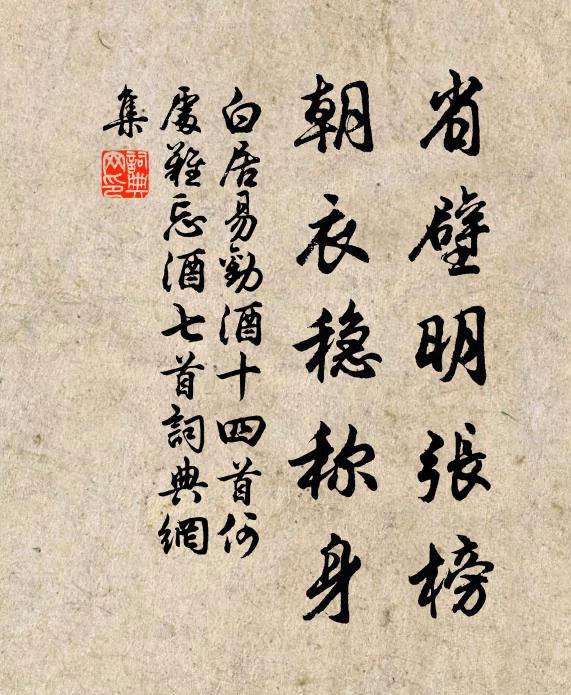 省壁明張榜
朝衣穩称身
白居易勸酒十四首何
處難忘酒七首詞典網
集
詞典
网印